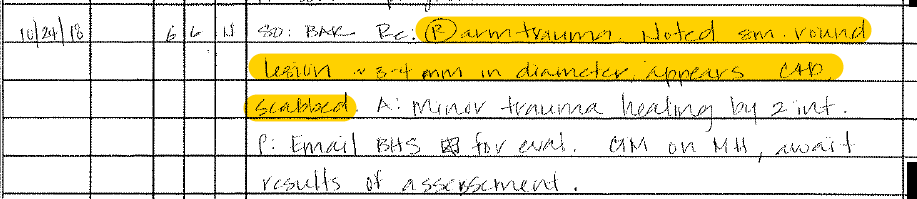 10/24/18 6 6 N SO: BAR Re: Ⓡ arm trauma. Noted sm. round
lesion ~ 3-4 mm in diameter, appears C+D,
scabbed. A: Minor trauma healing by 2 int.
P: Email BHS for eval. CTM on MH, await
results of assessment.